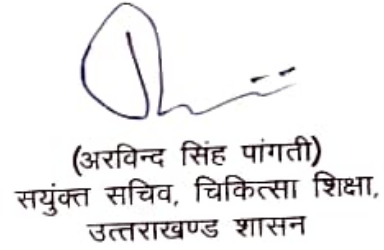 (अरविन्द सिंह पांगती)
सयुंक्त सचिव, चिकित्सा शिक्षा,
उत्तराखण्ड शासन